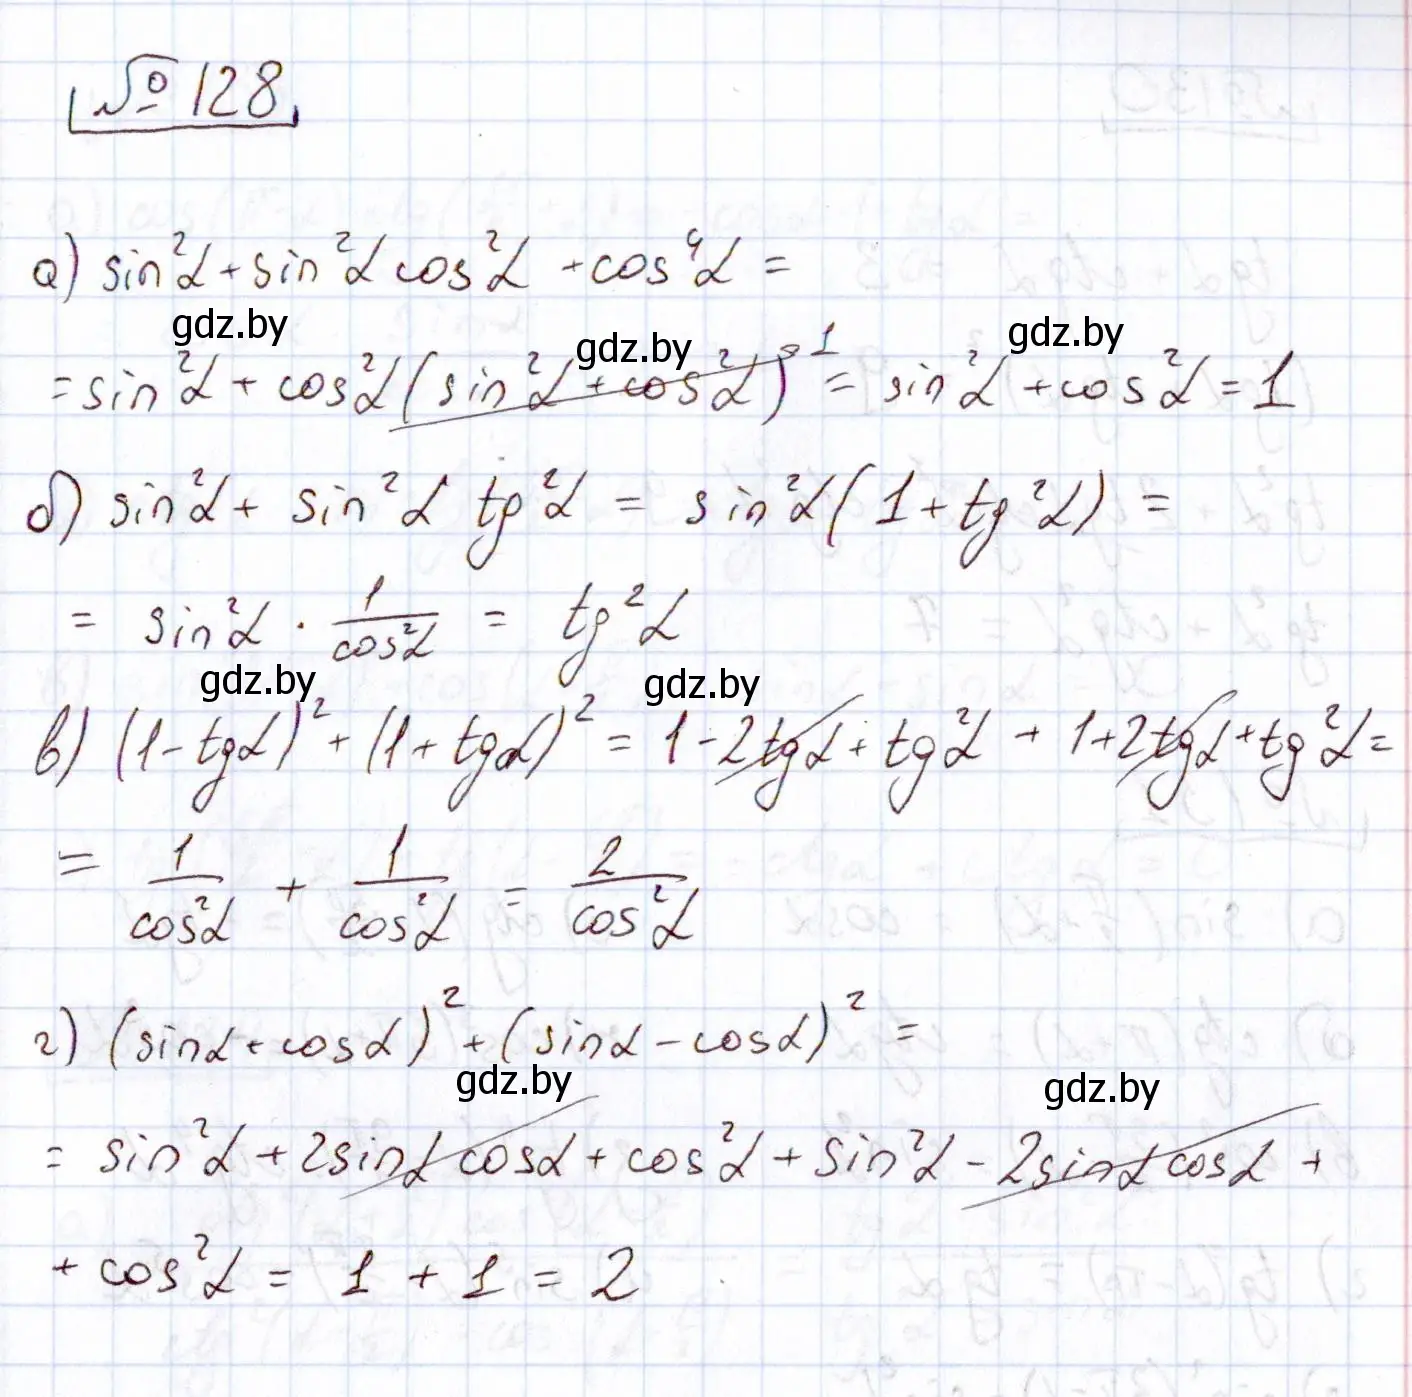 № 128
а) sin²α + sin²α cos²α + cos⁴α =
gdz.by
gdz.by
gdz.by
= sin²α + cos²α (sin²α + cos²α)¹ = sin²α + cos²α = 1
б) sin²α + sin²α tg²α = sin²α (1 + tg²α) =
= sin²α · 1/cos²α = tg²α
gdz.by
gdz.by
в) (1 - tgα)² + (1 + tgα)² = 1 - 2tgα + tg²α + 1 + 2tgα + tg²α =
= 1/cos²α + 1/cos²α = 2/cos²α
г) (sinα + cosα)² + (sinα - cosα)² =
gdz.by
gdz.by
= sin²α + 2sinα cosα + cos²α + sin²α - 2sinα cosα +
+ cos²α = 1 + 1 = 2